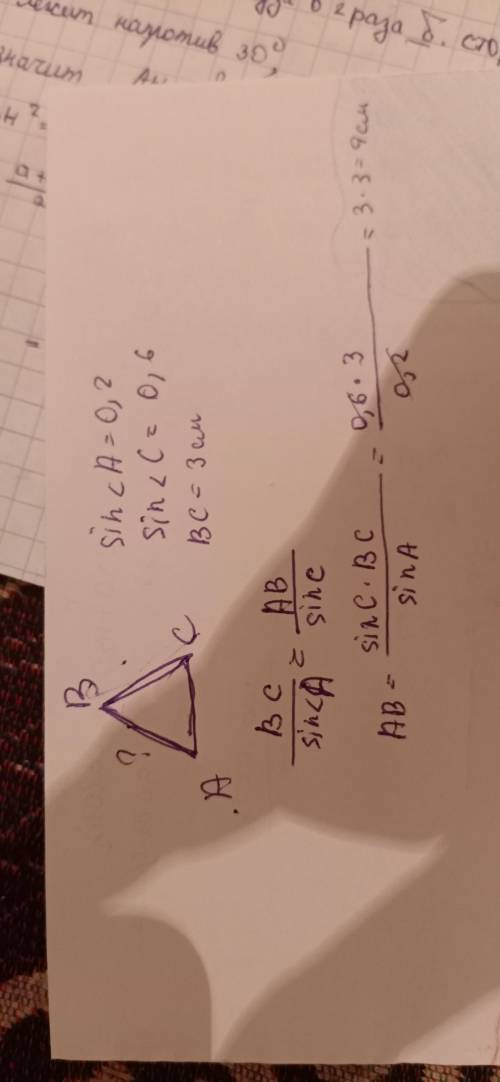 лежит напротив 30°,
в 2 раза б. сто
значит
B
?
A
C
sin<A = 0,2
sin<C = 0,6
BC = 3 см
BC/sin<A = AB/sinC
AB = sinC · BC/sinA = 0,6 · 3/0,2 = 3 · 3 = 9 см